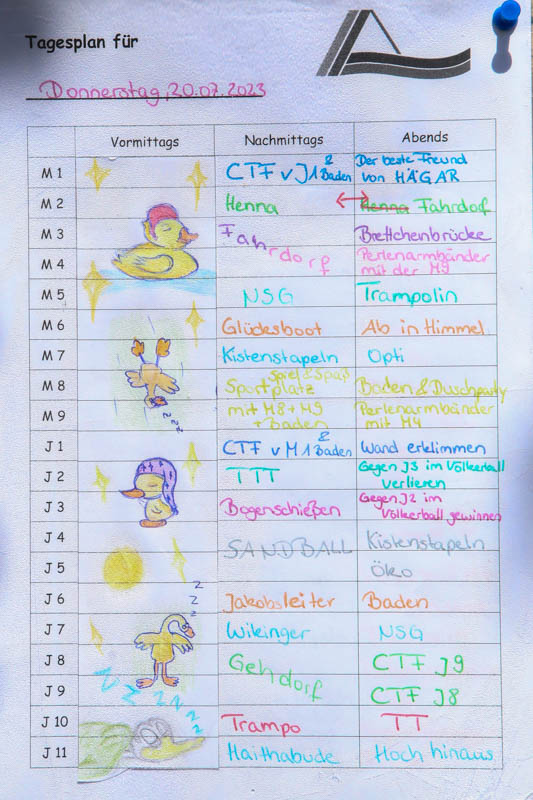 Tagesplan für
Donnerstag, 20.07.2023
Vormittags Nachmittags Abends
M 1 CTF v J1 & Baden Der beste Freund von HÄGAR
M 2 Henna ↔ Henna Fahrdorf
M 3 Fahrdorf Brettchenbrücke
M 4 Perlenarmbänder mit der M9
M 5 NSG Trampolin
M 6 Glüdesboot Ab in Himmel
M 7 Kistenstapeln Opti
M 8 Spiel & Spaß Sportplatz Baden & Duschparty
M 9 mit M8 + M9 + Baden Perlenarmbänder mit M4
J 1 CTF v M1 & Baden Wand erklimmen
J 2 TTT Gegen J3 im Völkerball verlieren
J 3 Bogenschießen Gegen J2 im Völkerball gewinnen
J 4 SANDBALL Kistenstapeln
J 5 Öko
J 6 Jakobsleiter Baden
J 7 Wikinger NSG
J 8 Gehdorf CTF J9
J 9 CTF J8
J 10 Trampo TT
J 11 Haithabude Hoch hinaus
z z z
z z z
N Z Z N Z Z Z